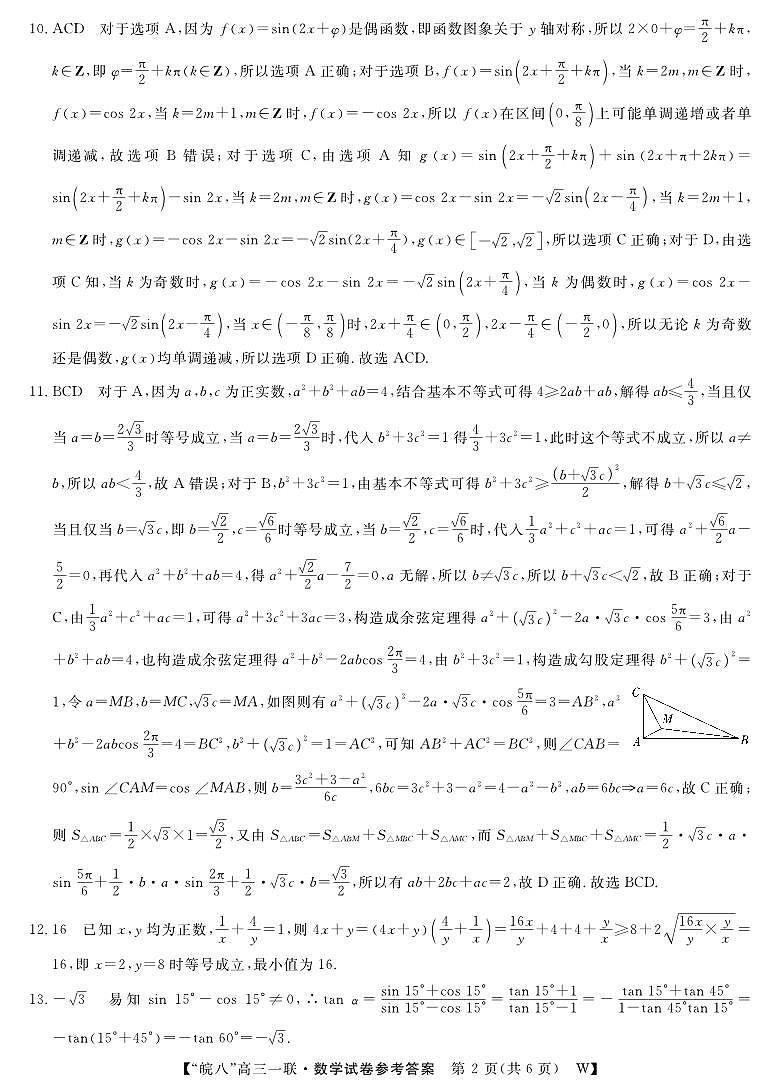 10. ACD 对于选项 A,因为 f(x)=sin(2x+φ)是偶函数,即函数图象关于 y 轴对称,所以 2×0+φ=π/2+kπ,
k∈Z,即 φ=π/2+kπ(k∈Z),所以选项 A 正确;对于选项 B,f(x)=sin(2x+π/2+kπ),当 k=2m,m∈Z 时,
f(x)=cos 2x,当 k=2m+1,m∈Z 时,f(x)=-cos 2x,所以 f(x)在区间(0,π/8)上可能单调递增或者单
调递减,故选项 B 错误;对于选项 C,由选项 A 知 g(x)=sin(2x+π/2+kπ)+sin(2x+π+2kπ)=
sin(2x+π/2+kπ)-sin 2x,当 k=2m,m∈Z 时,g(x)=cos 2x-sin 2x=-√2sin(2x-π/4),当 k=2m+1,
m∈Z 时,g(x)=-cos 2x-sin 2x=-√2sin(2x+π/4),g(x)∈[-√2,√2],所以选项 C 正确;对于 D,由选
项 C 知,当 k 为奇数时,g(x)=-cos 2x-sin 2x=-√2sin(2x+π/4),当 k 为偶数时,g(x)=cos 2x-
sin 2x=-√2sin(2x-π/4),当 x∈(-π/8,π/8)时,2x+π/4∈(0,π/2),2x-π/4∈(-π/2,0),所以无论 k 为奇数
还是偶数,g(x)均单调递减,所以选项 D 正确.故选 ACD.
11. BCD 对于 A,因为 a,b,c 为正实数,a²+b²+ab=4,结合基本不等式可得 4≥2ab+ab,解得 ab≤4/3,当且仅
当 a=b=2√3/3时等号成立,当 a=b=2√3/3时,代入 b²+3c²=1 得4/3+3c²=1,此时这个等式不成立,所以 a≠
b,所以 ab<4/3,故 A 错误;对于 B,b²+3c²=1,由基本不等式可得 b²+3c²≥(b+√3c)²/2,解得 b+√3c≤√2,
当且仅当 b=√3c,即 b=√2/2,c=√6/6时等号成立,当 b=√2/2,c=√6/6时,代入1/3a²+c²+ac=1,可得 a²+√6/2a-
5/2=0,再代入 a²+b²+ab=4,得 a²+√2/2a-7/2=0,a 无解,所以 b≠√3c,所以 b+√3c<√2,故 B 正确;对于
C,由1/3a²+c²+ac=1,可得 a²+3c²+3ac=3,构造成余弦定理得 a²+(√3c)²-2a·√3c·cos 5π/6=3,由 a²
+b²+ab=4,也构造成余弦定理得 a²+b²-2abcos 2π/3=4,由 b²+3c²=1,构造成勾股定理得 b²+(√3c)²=
1,令 a=MB,b=MC,√3c=MA,如图则有 a²+(√3c)²-2a·√3c·cos 5π/6=3=AB²,a²
+b²-2abcos 2π/3=4=BC²,b²+(√3c)²=1=AC²,可知 AB²+AC²=BC²,则∠CAB=
C
M
A
B
90°,sin ∠CAM=cos ∠MAB,则 b=3c²+3-a²/6c,6bc=3c²+3-a²=4-a²-b²,ab=6bc⇒a=6c,故 C 正确;
则 S△ABC=1/2×√3×1=√3/2,又由 S△ABC=S△ABM+S△MBC+S△AMC,而 S△ABM+S△MBC+S△AMC=1/2·√3c·a·
sin 5π/6+1/2·b·a·sin 2π/3+1/2·√3c·b=√3/2,所以有 ab+2bc+ac=2,故 D 正确.故选 BCD.
12. 16 已知 x,y 均为正数,1/x+4/y=1,则 4x+y=(4x+y)(4/y+1/x)=16x/y+4+4+y/x≥8+2√(16x/y×y/x)=
16,即 x=2,y=8 时等号成立,最小值为 16.
13. -√3 易知 sin 15°-cos 15°≠0,∴tan α=(sin 15°+cos 15°)/(sin 15°-cos 15°)=(tan 15°+1)/(tan 15°-1)=-(tan 15°+tan 45°)/(1-tan 45°tan 15°)=
-tan(15°+45°)=-tan 60°=-√3.
【“皖八”高三一联·数学试卷参考答案 第 2 页(共 6 页) W】